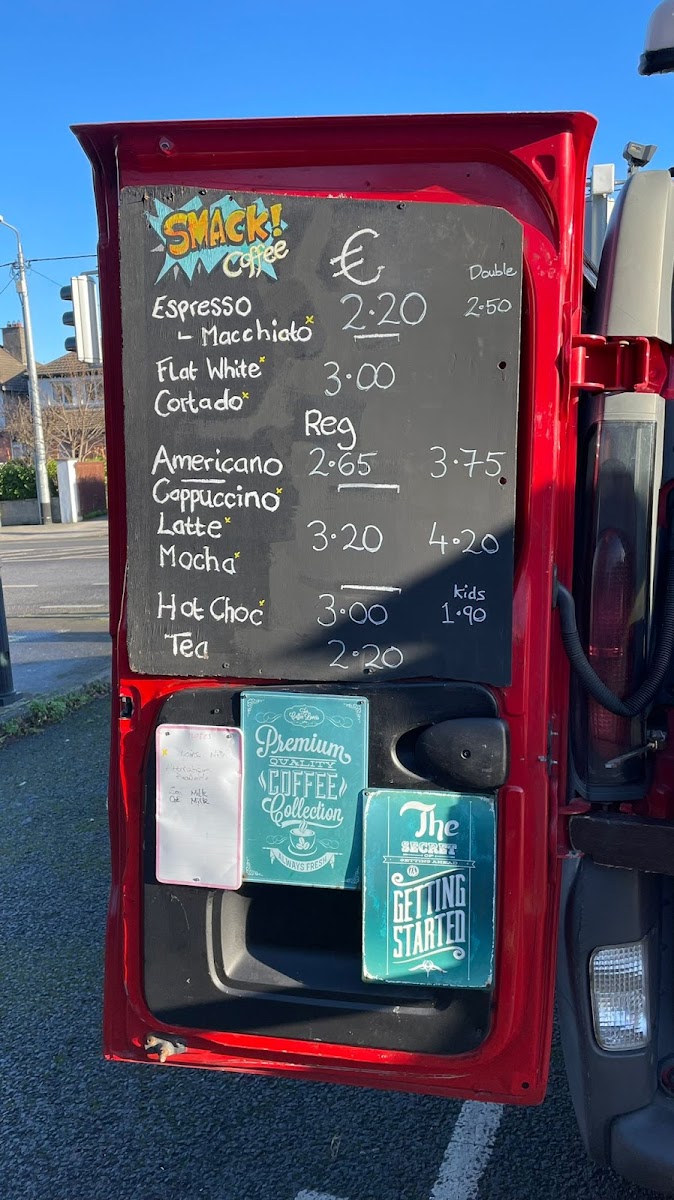 SMACK!
Coffee
€
Double
Espresso 2.20 2.50
- Macchiato*
Flat White* 3.00
Cortado*
Reg
Americano 2.65 3.75
Cappuccino*
Latte* 3.20 4.20
Mocha*
Kids
Hot Choc* 3.00 1.90
Tea 2.20
Premium
QUALITY
COFFEE
Collection
ALWAYS FRESH
Milk
Oat Milk
The
SECRET
OF
GETTING AHEAD
IS
GETTING
STARTED